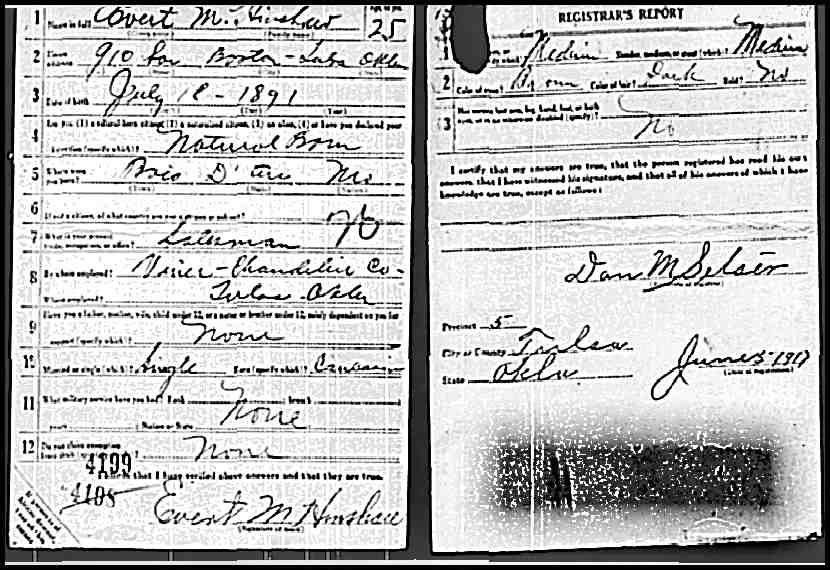 1 Name in full Evert M. Hinshaw 25
2 Home address 910 So. Boston - Tulsa Okla
3 Date of birth July 18 - 1891
4 Are you (1) a natural born citizen, (2) a naturalized citizen, (3) an alien, (4) or have you declared your
intention (specify which)? Natural Born
5 Where were you born? Bois D'arc Mo
6 If not a citizen, of what country are you a citizen or subject?
7 What is your present trade, occupation, or office? Salesman
8 By whom employed? Co-
Where employed? Tulsa Okla
9 Have you a father, mother, wife, child under 12, or a sister or brother under 12, solely dependent on you for
support (specify which)? None
10 Married or single (which)? Single Race (specify which)?
11 What military service have you had? Rank None branch
years Nation or State
12 Do you claim exemption from draft None
4199
4108
I affirm that I have verified above answers and that they are true.
Evert M Hinshaw
(Signature or mark)
REGISTRAR'S REPORT
1 Medium Slender, medium, or stout (which)? Medium
2 Color of eyes? Brown Color of hair? Dark Bald? No
3 Has person lost arm, leg, hand, foot, or both
eyes, or is he otherwise disabled (specify)?
No
I certify that my answers are true, that the person registered has read his own
answers, that I have witnessed his signature, and that all of his answers of which I have
knowledge are true, except as follows:
Dan M Selser
(Signature of Registrar)
Precinct 5
City or County Tulsa
State Okla
June 5 1917
(Date of registration)